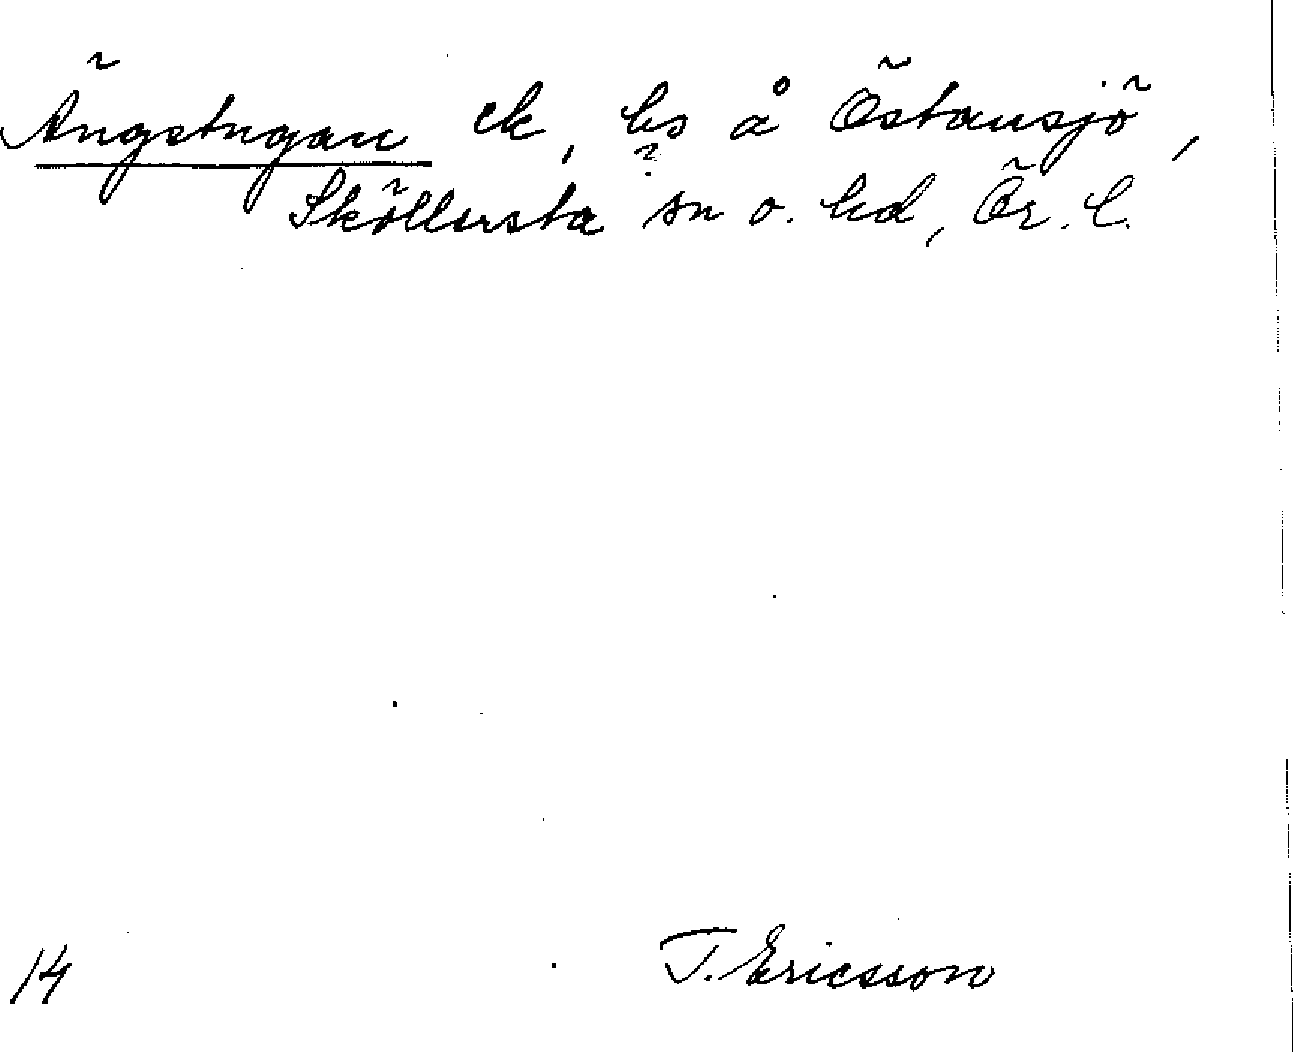 Ängstugan ek, hs å Östansjö,
?
Sköllersta sn o. hd, Ör. l.
14 T. Ericsson